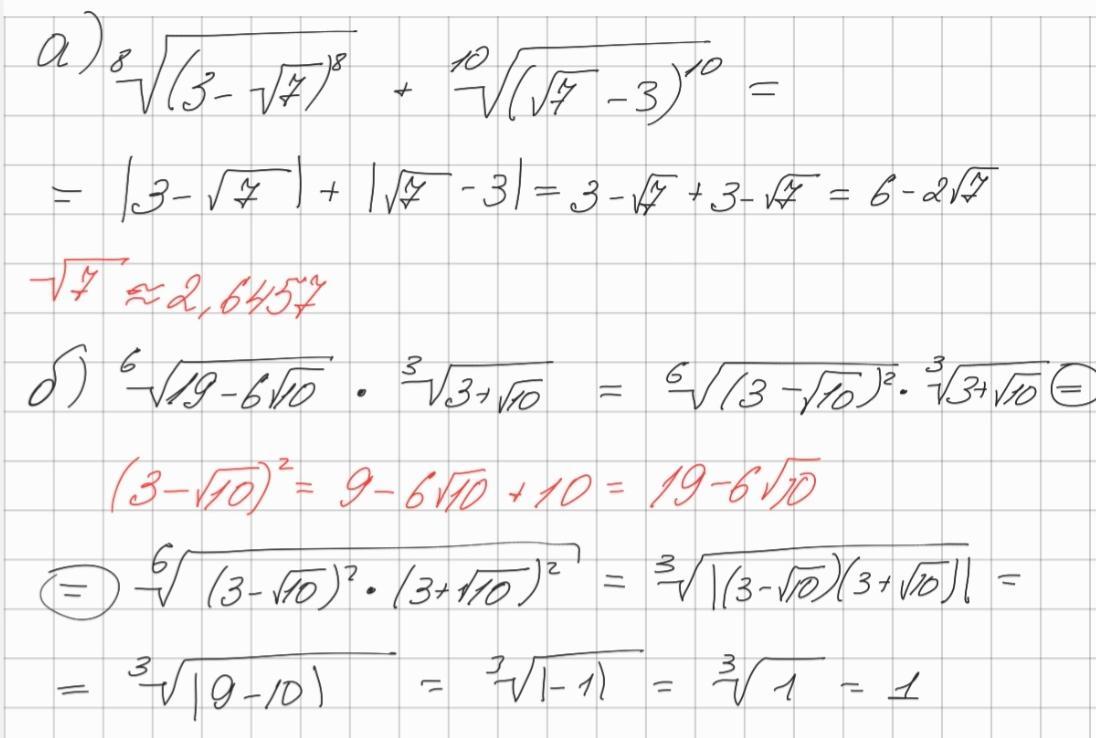 а) ⁸√((3-√7)⁸) + ¹⁰√((√7-3)¹⁰) =
= |3-√7| + |√7-3| = 3-√7+3-√7 = 6-2√7
√7 ≈ 2,6457
б) ⁶√(19-6√10) · ³√(3+√10) = ⁶√((3-√10)²) · ³√(3+√10) =
(3-√10)² = 9-6√10+10 = 19-6√10
= ⁶√((3-√10)²·(3+√10)²) = ³√|(3-√10)(3+√10)| =
= ³√|9-10| = ³√|-1| = ³√1 = 1